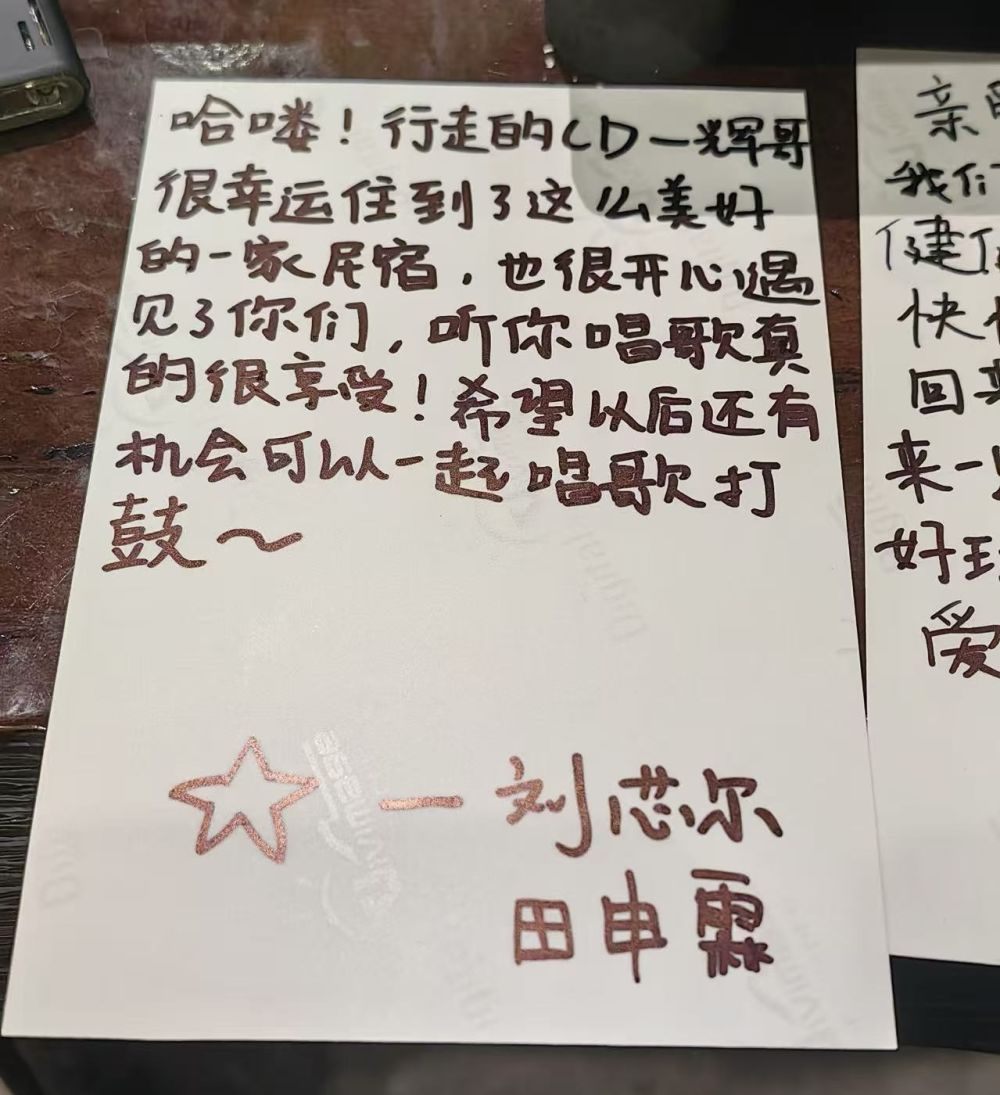 哈喽！行走的CD一辉哥
很幸运住到了这么美好
的一家民宿，也很开心遇
见了你们，听你唱歌真
的很享受！希望以后还有
机会可以一起唱歌打
鼓～
— 刘芯尔
田申霖
亲
我们
健
快
回来
来一
好玩
爱